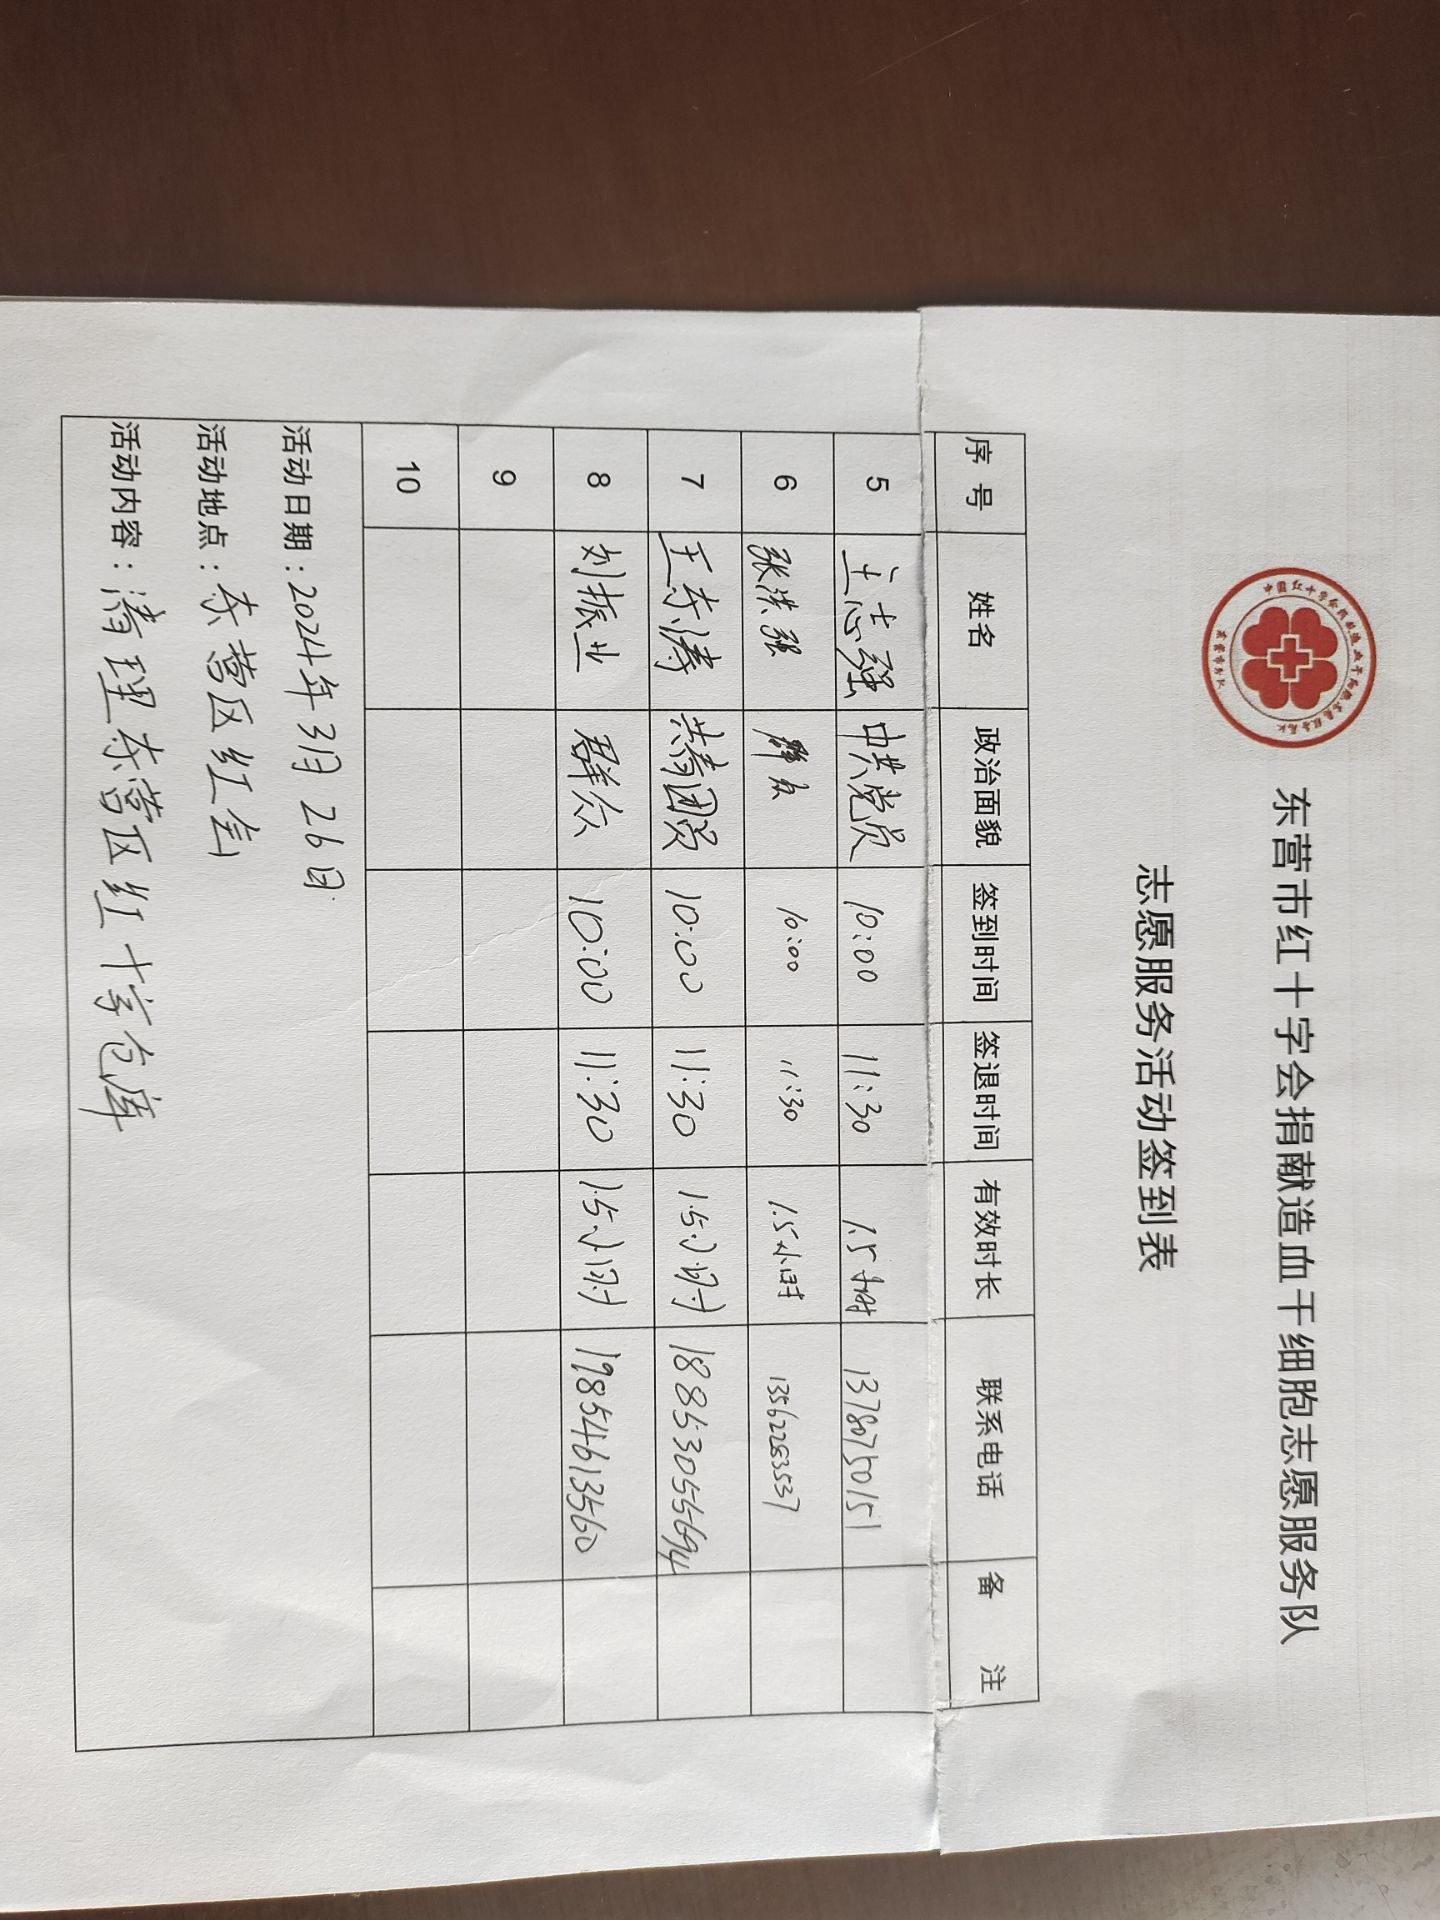 东营市红十字会捐献造血干细胞志愿服务队
志愿服务活动签到表
序号 姓名 政治面貌 签到时间 签退时间 有效时长 联系电话 备 注
5 王志强 中共党员 10:00 11:30 1.5小时 13780750151
6 张洪强 群众 10:00 11:30 1.5小时 13562283537
7 王东涛 共青团员 10:00 11:30 1.5小时 18853055694
8 刘振业 群众 10:00 11:30 1.5小时 19854613560
9
10
活动日期：2024年3月26日
活动地点：东营区红会
活动内容：清理东营区红十字仓库